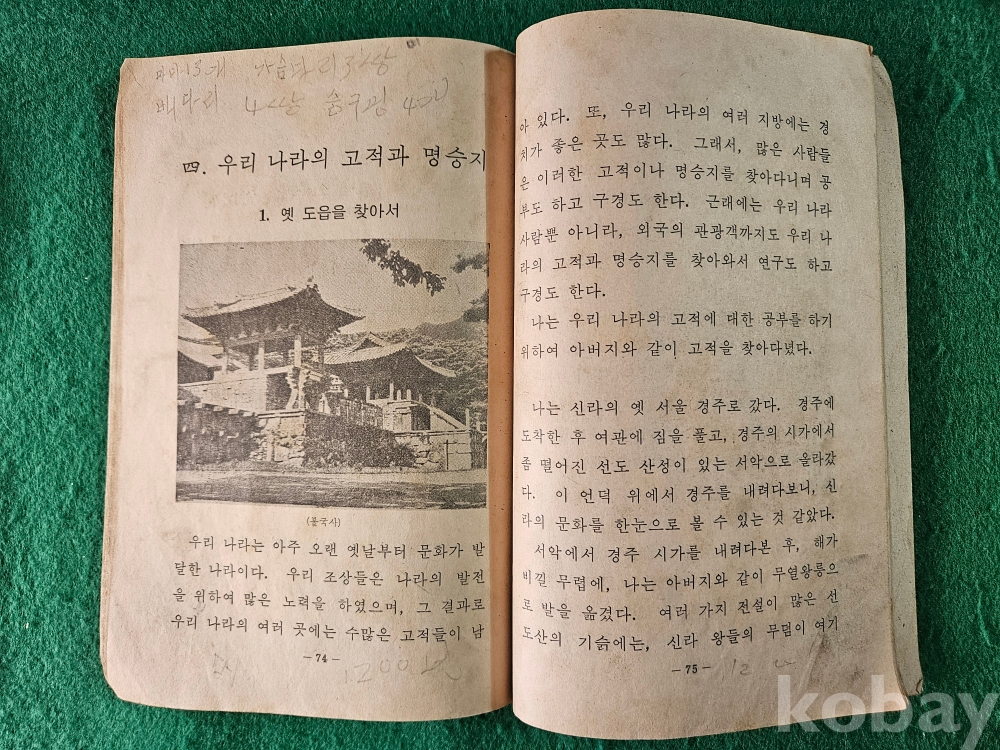 四. 우리 나라의 고적과 명승지
1. 옛 도읍을 찾아서
(불국사)
우리 나라는 아주 오랜 옛날부터 문화가 발
달한 나라이다. 우리 조상들은 나라의 발전
을 위하여 많은 노력을 하였으며, 그 결과로
우리 나라의 여러 곳에는 수많은 고적들이 남
－74－
1200
아 있다. 또, 우리 나라의 여러 지방에는 경
치가 좋은 곳도 많다. 그래서, 많은 사람들
은 이러한 고적이나 명승지를 찾아다니며 공
부도 하고 구경도 한다. 근래에는 우리 나라
사람뿐 아니라, 외국의 관광객까지도 우리 나
라의 고적과 명승지를 찾아와서 연구도 하고
구경도 한다.
나는 우리 나라의 고적에 대한 공부를 하기
위하여 아버지와 같이 고적을 찾아다녔다.
나는 신라의 옛 서울 경주로 갔다. 경주에
도착한 후 여관에 짐을 풀고, 경주의 시가에서
좀 떨어진 선도 산성이 있는 서악으로 올라갔
다. 이 언덕 위에서 경주를 내려다보니, 신
라의 문화를 한눈으로 볼 수 있는 것 같았다.
서악에서 경주 시가를 내려다본 후, 해가
비낄 무렵에, 나는 아버지와 같이 무열왕릉으
로 발을 옮겼다. 여러 가지 전설이 많은 선
도산의 기슭에는, 신라 왕들의 무덤이 여기
－75－
12
kobay